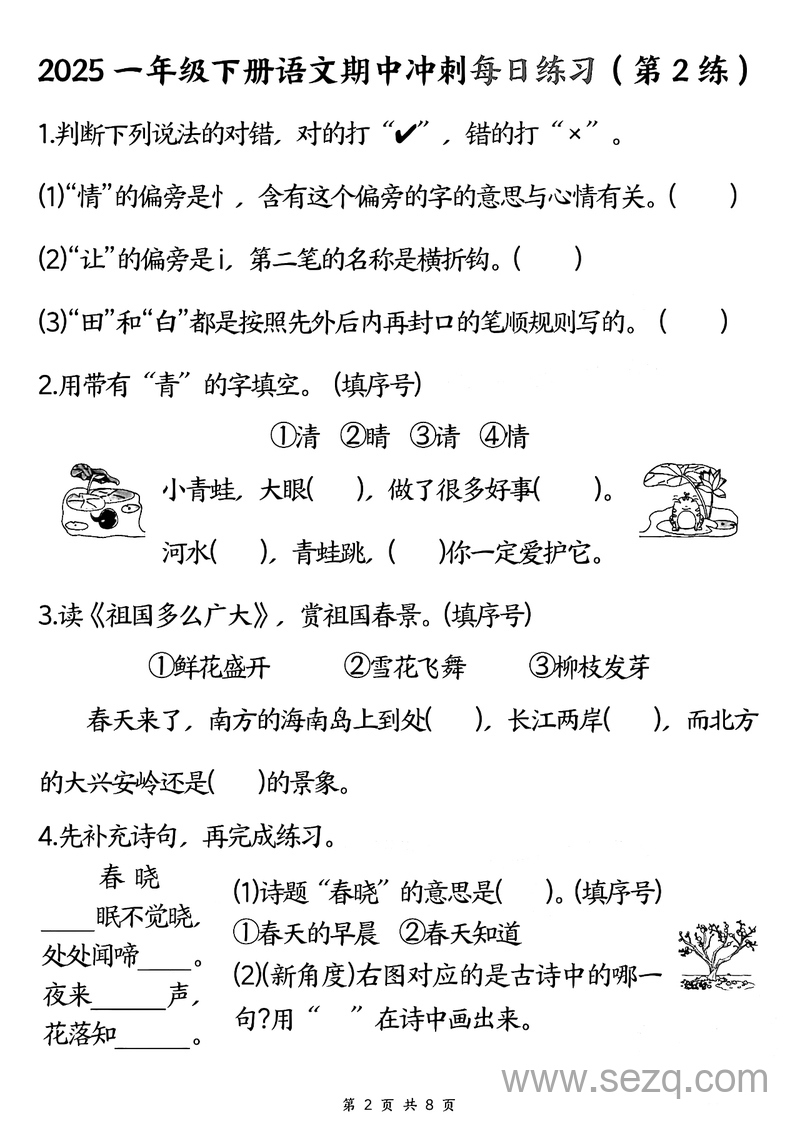 2025 一年级下册语文期中冲刺每日练习（第 2 练）
1.判断下列说法的对错，对的打“✔”，错的打“×”。
(1)“情”的偏旁是忄，含有这个偏旁的字的意思与心情有关。(　　)
(2)“让”的偏旁是i，第二笔的名称是横折钩。(　　)
(3)“田”和“白”都是按照先外后内再封口的笔顺规则写的。(　　)
2.用带有“青”的字填空。(填序号)
①清 ②晴 ③请 ④情
小青蛙，大眼(　　)，做了很多好事(　　)。
河水(　　)，青蛙跳，(　　)你一定爱护它。
3.读《祖国多么广大》，赏祖国春景。(填序号)
①鲜花盛开 ②雪花飞舞 ③柳枝发芽
春天来了，南方的海南岛上到处(　　)，长江两岸(　　)，而北方
的大兴安岭还是(　　)的景象。
4.先补充诗句，再完成练习。
春 晓
____眠不觉晓，
处处闻啼____。
夜来______声，
花落知______。
(1)诗题“春晓”的意思是(　　)。(填序号)
①春天的早晨 ②春天知道
(2)(新角度)右图对应的是古诗中的哪一
句?用“　”在诗中画出来。
www.sezq.com
第 2 页 共 8 页